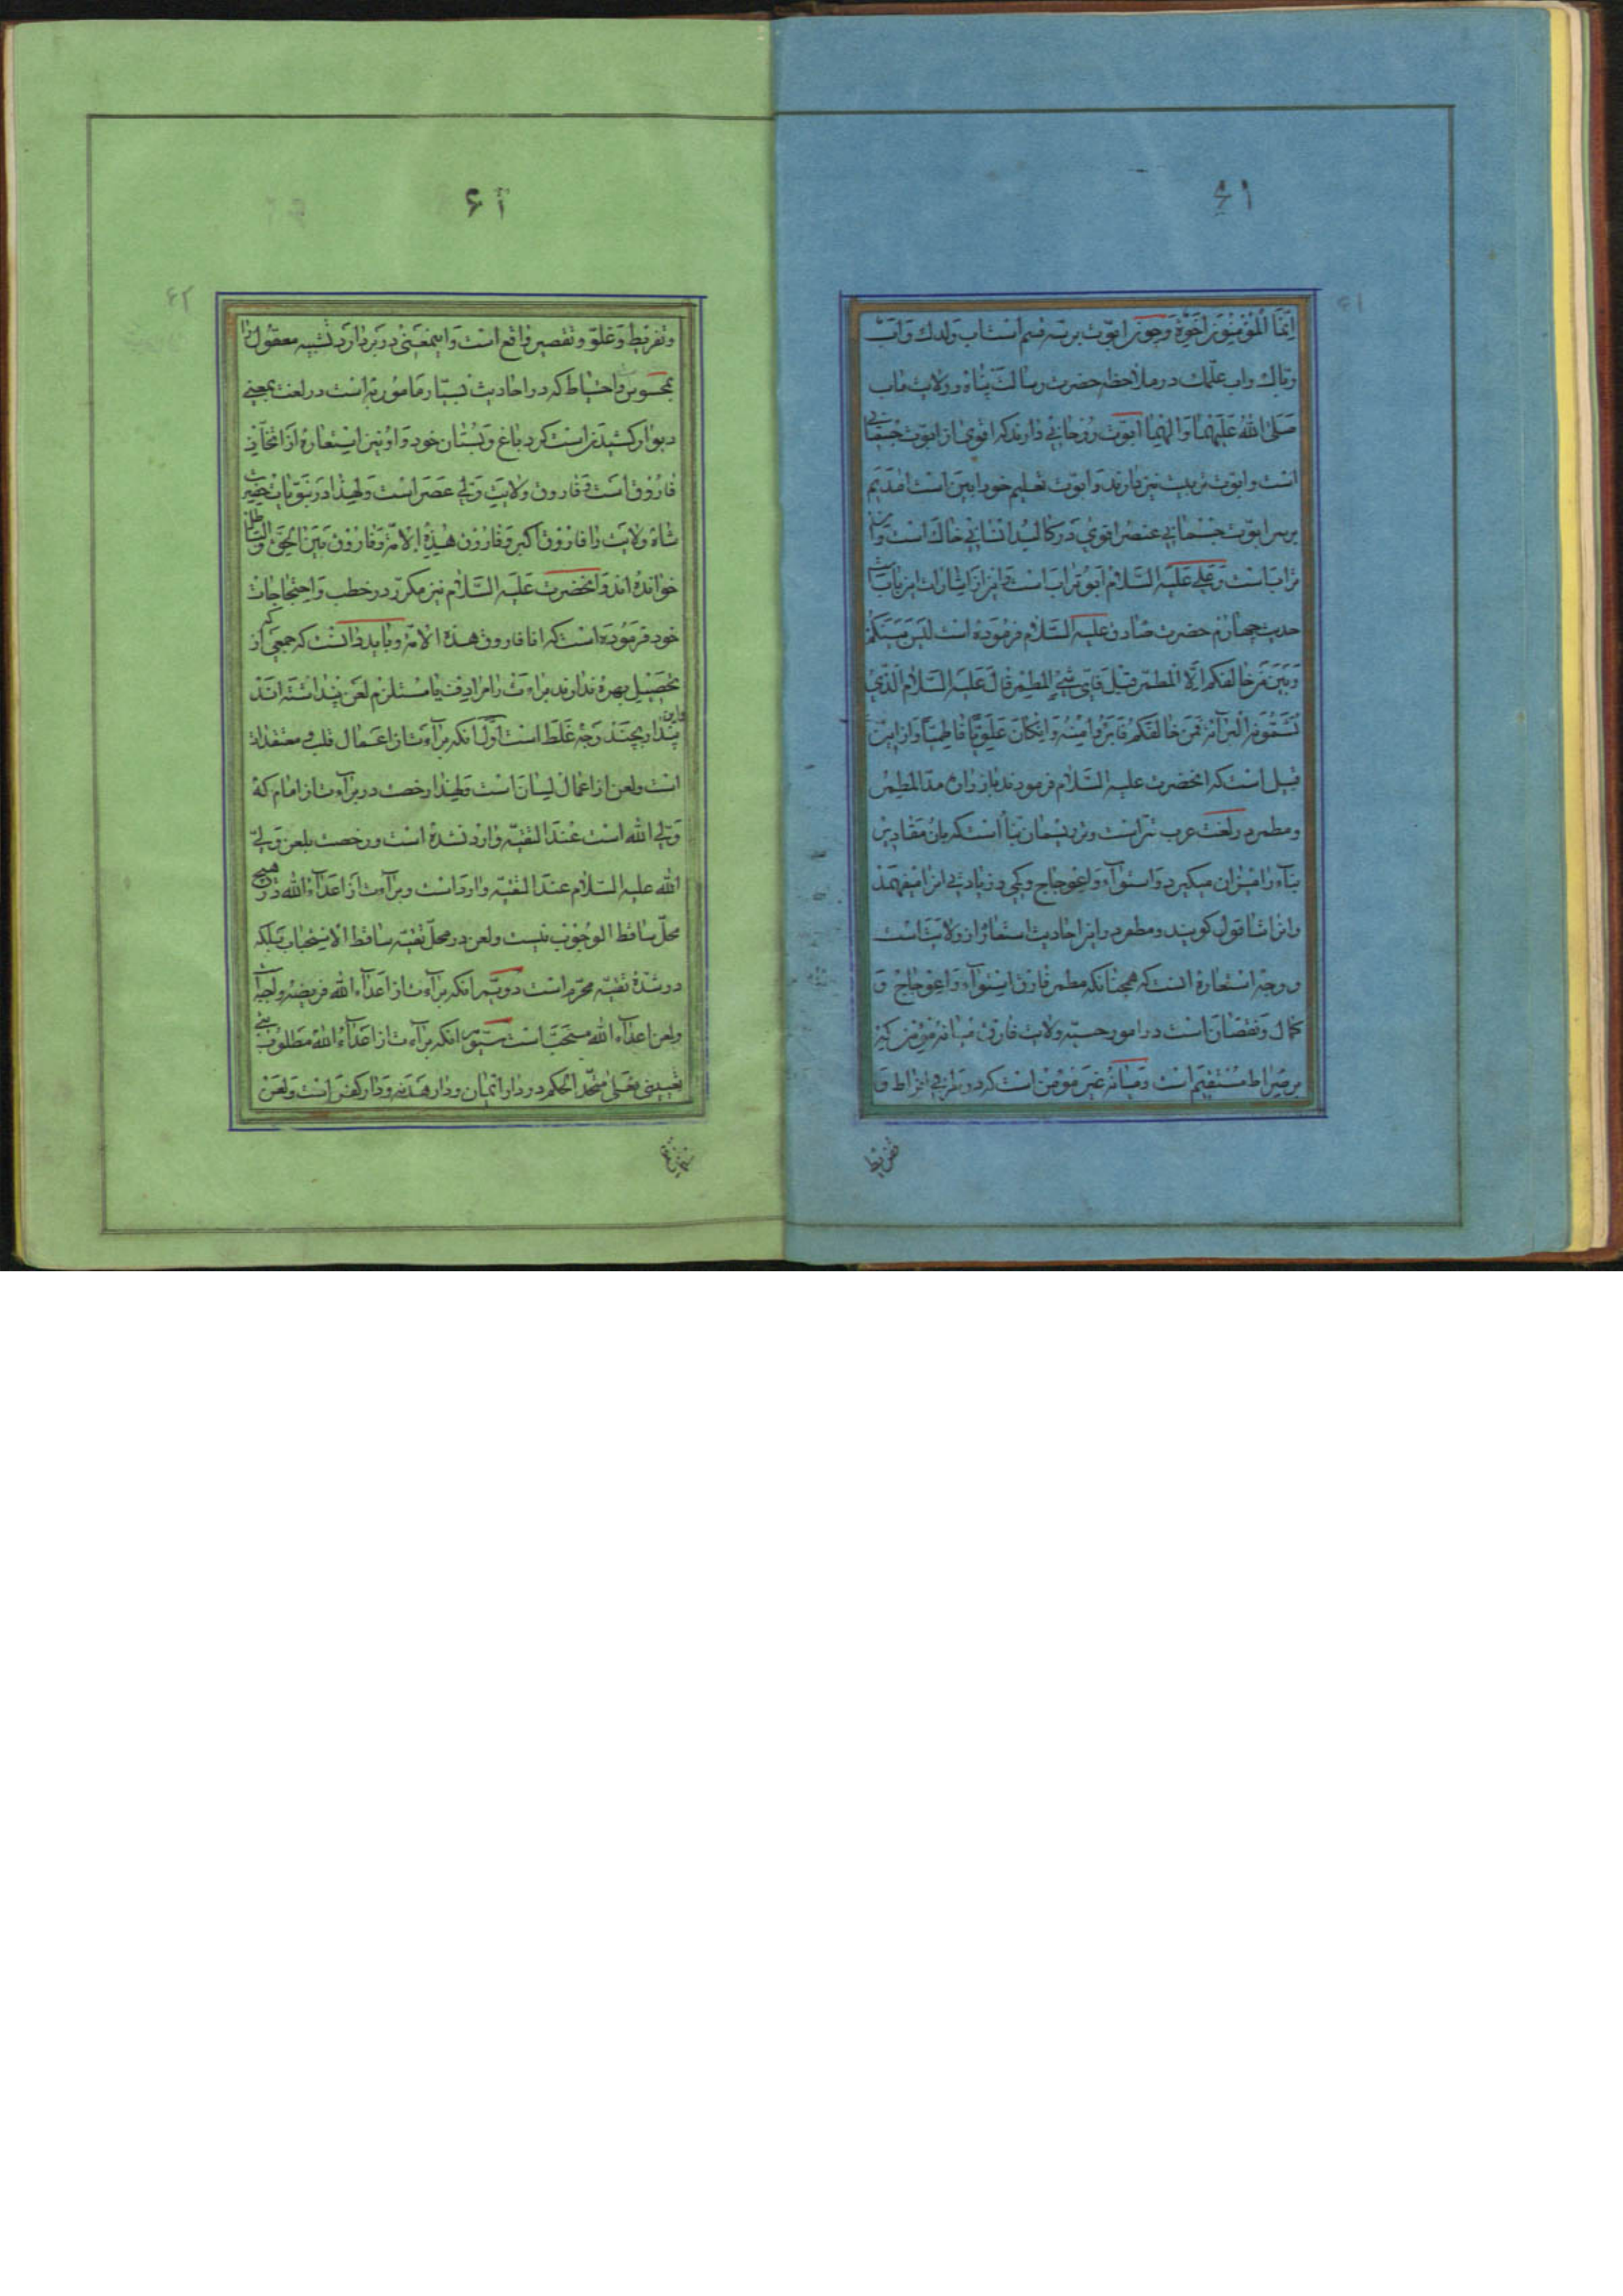 ۶۱
۶۱
اِنَّمَا الْمُؤْمِنُونَ اِخْوَةٌ وَچون ابوّت بر سه قسم است اب ولدك وَاَب
ربّاك واب علّمك در ملاحظه حضرت رسالت پناه و ولایت ماب
صَلَّی اللهُ عَلَیهِمَا وَآلِهِمَا ابوّت روحانی دارند که اقوی از ابوّت جسمانی
است و ابوّت تربیت نیز دارند و ابوّت تعلیم خود ابین است آمدیم
بر سر ابوّت جسمانی عنصر اقوی در کالبد انسانی خاك است و
تراب است وَعلی عَلَیهِ السَّلام اَبوتراب است و این از اشارات این باب
حدیث چهارم حضرت صادق علیه السَّلام فرموده است لَیسَ بَینَکُم
وَبَینَ مَن خالَفَکُم اِلَّا المطمر قیلَ فَاَیُّ شَیءٍ المطمر قالَ عَلَیهِ السَّلام الَّذی
تُسَمُّونَه التر فَمَن خالَفَکُم فَابرَؤا مِنهُ وَاِن کانَ عَلَوِیّاً فاطِمِیّاً و از این
قبیل است که انحضرت علیه السَّلام فرمودند یا زراره مدّ المطمر
ومطمر در لغت عرب تر است و تر ریسمان بنّا است که بان مقادیر
بناء را میزان میگیرد وَاستواء وَاعوجاج و کمی و زیادتی انرا میفهمند
وانرا شاقول گویند و مطمر در این احادیث استعاره از ولایت است
و وجه استعاره انست که همچنانکه مطمر فارق استواء وَاعوجاج وَ
کمال وَنقصان است در امور حسیّه ولایت فارق میانه مؤمنی که
بر صراط مستقیم است وَمیانه غیر مؤمن است که در طرفی افراط وَ
تفریط
۶۱
۶۲
وتفریط وَغلوّ و تقصیر واقع است وَاینمعنی در بر دارد تشبیه معقول را
بمحسوس واحتیاط که در احادیث بسیار مامور به است در لغت بمعنی
دیوار کشیدن است گرد باغ وَبُستان خود وَاو نیز استعاره از اتخاذ
فاروق است وَفاروق ولایت وَلی عَصر است وَلهذا در نبوّیات حضرت
شاه ولایت را فاروق اکبر وَفاروق هذِهِ الاُمّة وَفاروق بَینَ الحَقّ وَالباطل
خوانده اند وَانحضرت عَلَیهِ السَّلام نیز مکرّر در خطب وَاحتجاجات
خود فرموده است که انا فاروق هذه الامّة وبباید دانست که جمعی که از
تحصیل بهره ندارند براءت را مرادف یا مستلزم لعن پنداشته اند
و این پندار بچند وَجه غلط است اوّلا انکه براءت از اعمال قلب و معتقدات
است ولعن از اعمال لسان است وَلهذا رخصت در براءت از امام که
وَلی الله است عِندَ التقیّه وارد نشده است و رخصت بلعن وَلیّ
الله علیه السَّلام عندَ التقیّه وارد است وبراءت از اَعداء الله در هیچ
محلّ ساقط الوجوب نیست ولعن در محلّ تقیّه ساقط الاستحباب بلکه
در شدّة تقیّه محرّم است دویّم انکه براءت از اَعداء الله فریضه واجبه است
ولعن اعداء الله مستحبّ است سیّوم انکه براءت از اعداءُ الله مطلوب نفی
تعیینی بمعنی متّحد الحکم در دار ایمان و دار هدنه وَدار کفر است وَلعن